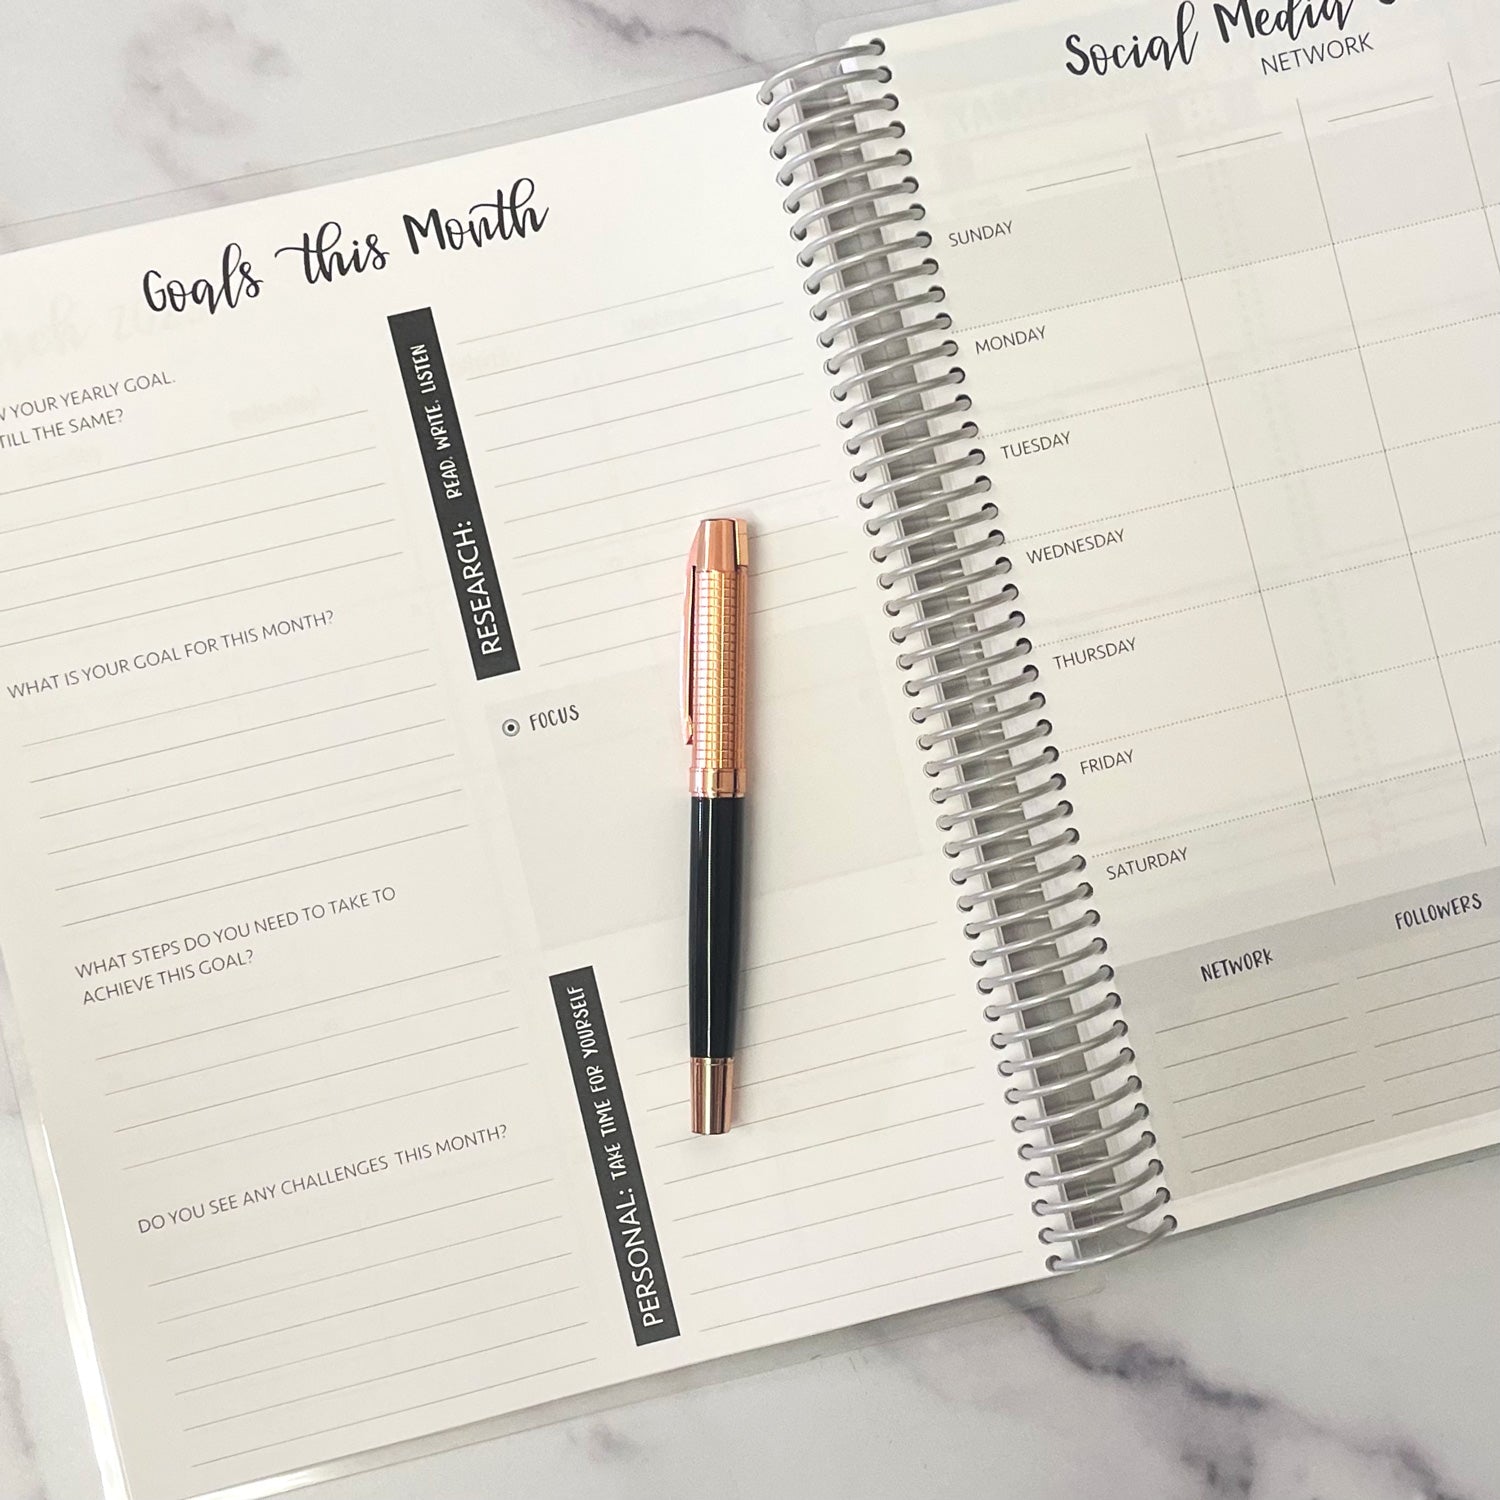 Goals this Month
YOUR YEARLY GOAL.
THE SAME?
WHAT IS YOUR GOAL FOR THIS MONTH?
WHAT STEPS DO YOU NEED TO TAKE TO
ACHIEVE THIS GOAL?
DO YOU SEE ANY CHALLENGES THIS MONTH?
RESEARCH: READ, WRITE, LISTEN
FOCUS
PERSONAL: TAKE TIME FOR YOURSELF
Social Media
NETWORK
SUNDAY
MONDAY
TUESDAY
WEDNESDAY
THURSDAY
FRIDAY
SATURDAY
NETWORK
FOLLOWERS